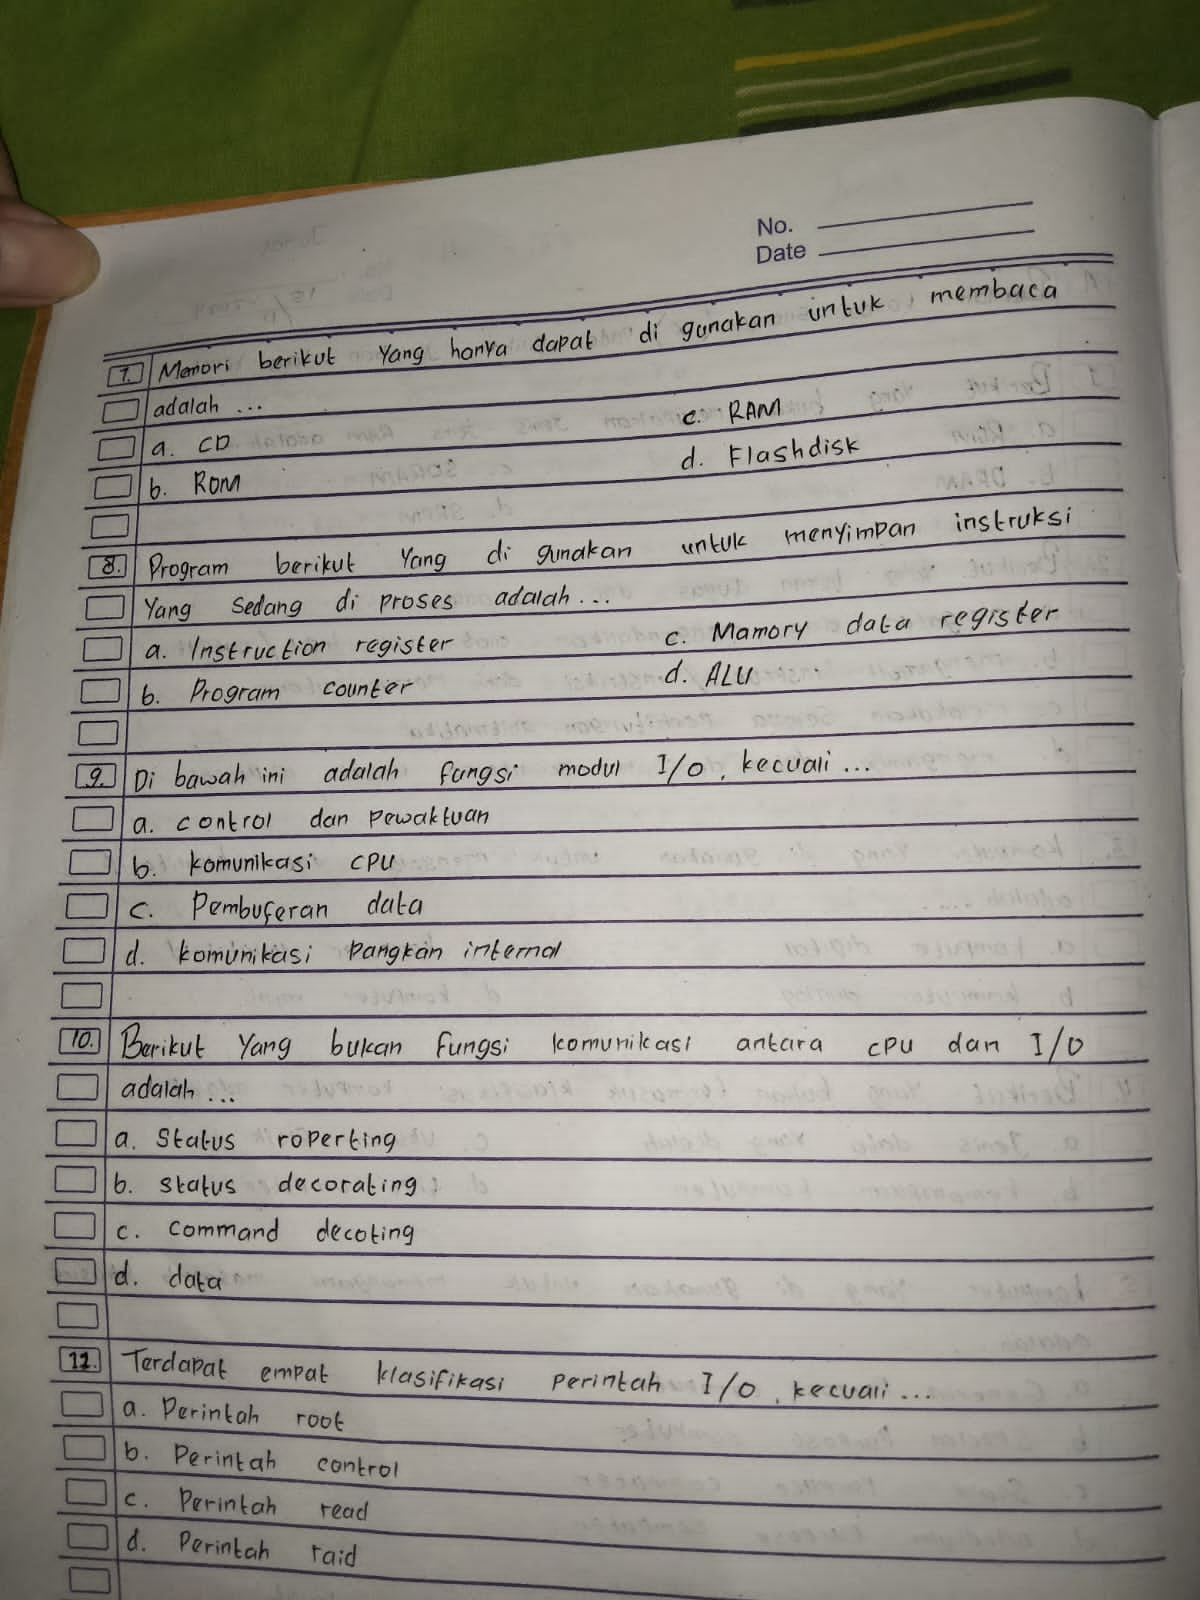 No.
Date
7. Memori berikut Yang hanya dapat di gunakan untuk membaca
adalah ...
a. CD
c. RAM
b. ROM
d. Flashdisk
8. Program berikut Yang di gunakan untuk menyimpan instruksi
Yang sedang di proses adalah ...
a. Instruction register
c. Mamory data register
b. Program counter
d. ALU
9. Di bawah ini adalah fungsi modul I/O, kecuali ...
a. control dan Pewaktuan
b. komunikasi CPU
c. Pembuferan data
d. komunikasi Pangkan internal
10. Berikut Yang bukan fungsi komunikasi antara CPU dan I/O
adalah ...
a. Status roperting
b. status decorating
c. command decoting
d. data
11. Terdapat empat klasifikasi perintah I/O, kecuali ...
a. Perintah root
b. Perintah control
c. Perintah read
d. Perintah raid